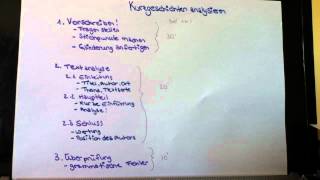 Kurzgeschichten analysieren
1. Vorschreiben!
- Fragen stellen
- Stichpunkte machen
- Gliederung anfertigen
30'
2. Textanalyse
2.1 Einleitung
- Titel, Autor, Ort
- Thema, Textsorte
2.2 Hauptteil
- kurze Einführung
- Analyse!
50'
2.3 Schluss
- Wertung
- Position des Autors
3. Überprüfung
- grammatische Fehler
10'